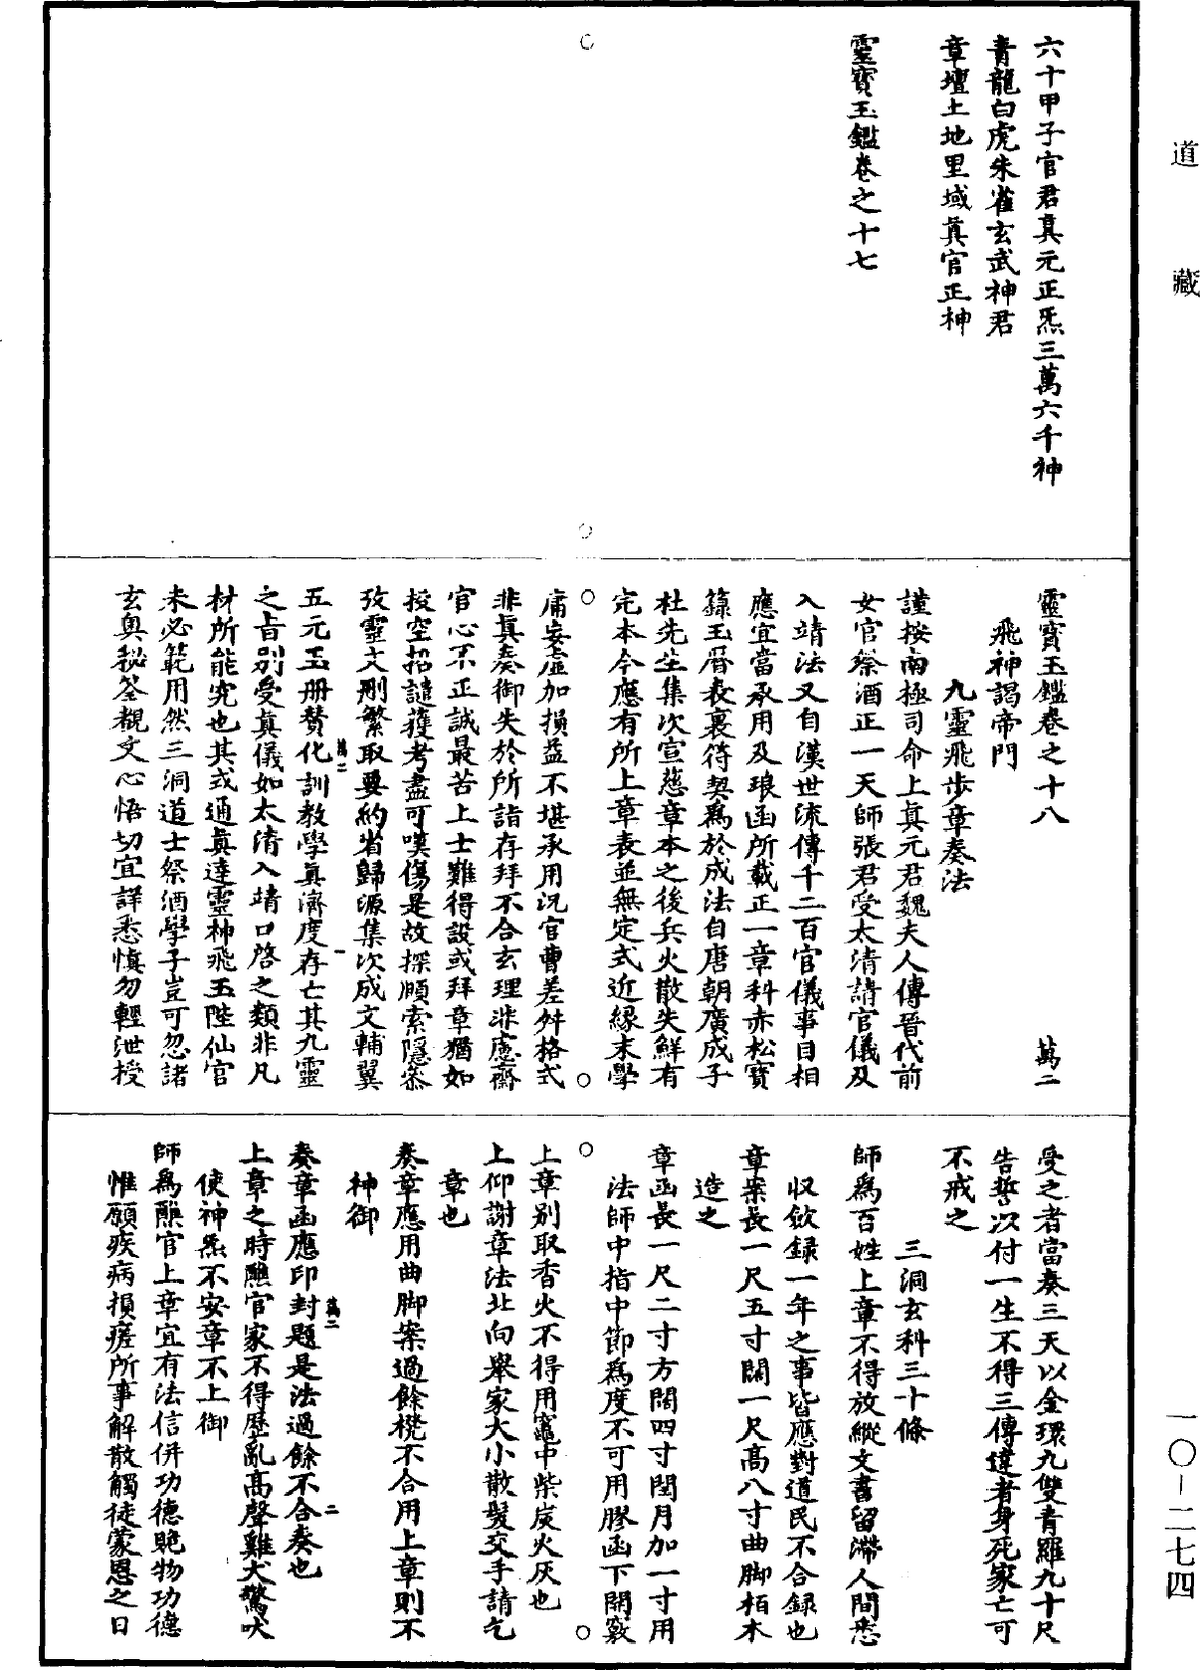 道藏
六十甲子官君真元正炁三萬六千神
青龍白虎朱雀玄武神君
章壇土地里域真官正神
靈寶玉鑑卷之十七
靈寶玉鑑卷之十八 萬二
飛神謁帝門
九靈飛步章奏法
謹按南極司命上真元君魏夫人傳晉代前
女官祭酒正一天師張君受太清請官儀及
入靖法又自漢世流傳千二百官儀事目相
應宜當承用及琅函所載正一章科赤松寶
籙玉曆表裏符契爲於成法自唐朝廣成子
杜先生集次宣慈章本之後兵火散失鮮有
完本今應有所上章表並無定式近緣末學
庸妄虛加損益不堪承用況官曹差舛格式
非真奏御失於所詣存拜不合玄理非應齋
官心不正誠最苦上士難得設或拜章猶如
投空招譴獲考盡可嘆傷是故探賾索隱叅
攷靈文刪繁取要約省歸源集次成文輔翼
五元玉册賛化訓教學真濟度存亡其九靈
之旨別受真儀如太清入靖口啓之類非凡
材所能究也其或通真達靈神飛玉陛仙官
未必範用然三洞道士祭酒學子豈可忽諸
玄奥秘筌覩文心悟切宜詳悉慎勿輕泄授
萬二 一
受之者當奏三天以金環九雙青羅九十尺
告誓次付一生不得三傳違者身死家亡可
不戒之
三洞玄科三十條
師爲百姓上章不得放縱文書留滯人間悉
収斂録一年之事皆應對道民不合録也
章案長一尺五寸闊一尺高八寸曲脚栢木
造之
章函長一尺二寸方闊四寸閏月加一寸用
法師中指中節爲度不可用膠函下開竅
上章别取香火不得用竈中柴炭火灰也
上仰謝章法北向舉家大小散髮交手請乞
章也
奏章應用曲脚案過餘櫈不合用上章則不
神御
奏章函應印封題是法過餘不合奏也
上章之時醮官家不得歷亂高聲雞犬驚吠
使神炁不安章不上御
師爲醮官上章宜有法信併功德貺物功德
惟願疾病損瘥所事解散觸徒蒙恩之日
萬二 二
一〇-二七四